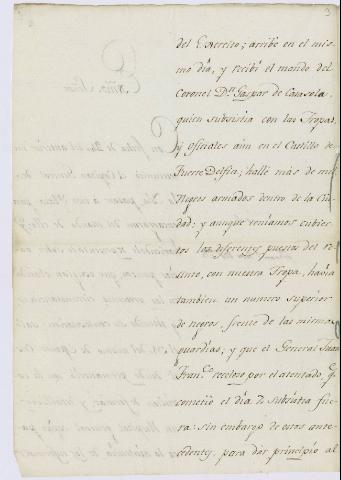 3
del Exercito; arribe en el mis-
mo dia, y recibi el mando del
Coronel Dn. Gaspar de Casasola,
quien subsistia con las Tropas,
y oficiales aun en el Castillo de
Fuerte Delfin; hallé más de mil
Negros armados dentro de la Ciu-
dad; y aunque teniamos cubier-
tos los diferentes puestos del re-
sinto, con nuestra Tropa, havia
tambien un numero superior
de negros, frente de las mismas
guardias; y que el General Juan
Franco. receloso por el atentado, q.
cometió el dia 7. subsistia fue-
ra: sin embargo de estos ante-
cedentes, para dár principio al